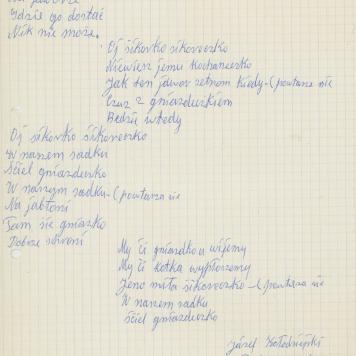 Gdzie go dostać
Nik nie może.
Oj sikorko sikoreczko
Niewiesz jemu kochaneczko
Jak ten jawor zetnom kiedy - (powtaza sie
Czuz z gniazdeczkiem
Bedzie wtedy
Oj sikorko sikoreczko
W naszem sadku
Ściel gniazdecko
W naszym sadku - (powtaza sie
Na jabłoni
Tam sie gniazko
Dobrze schroni
My Ci gniazdko uwijemy
My Ci kotka wypłoszemy
Jeno miła sikoreczko - (powtaza sie
W naszem sadku
ściel gniazdeczko
Józef